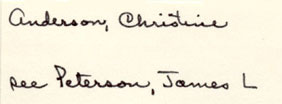 Anderson, Christine
see Peterson, James L